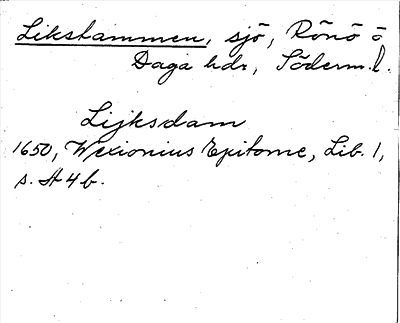 Likstammen, sjö, Rönö o
Daga hdr, Söderm. l.
Lijksdam
1650, Wexionius Epitome, Lib. 1,
s. A 4 b.